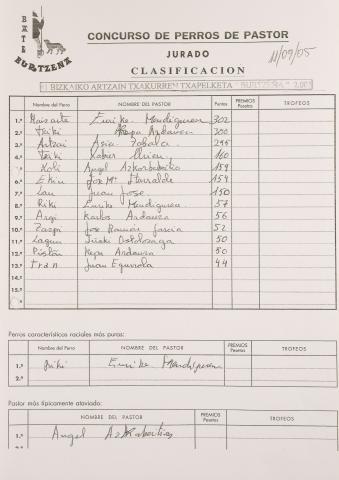 BATE
BURTZEÑA
CONCURSO DE PERROS DE PASTOR
11/09/05
JURADO
CLASIFICACION
BIZKAIKO ARTZAIN TXAKURREN TXAPELKETA BURTZEÑA 2.005
Nombre del Perro NOMBRE DEL PASTOR Puntos PREMIOS Pesetas TROFEOS
1.º Enrike Mendiguren 302
2.º Txiki Kepa Andauza 300
3.º Artzai Asia Zobala 295
4.º Txiki Xabier 160
5.º Xoli Angel Azkorbebeitia 159
6.º Jose Mª Iturralde 154
7.º Lau Juan Jose 150
8.º Riki Enrike Mendiguren 57
9.º Argi Karlos Andauza 56
10.º Zazpi Jose Ramon Garcia 52
11.º Lagun Iñaki 50
12.º Pistón Kepa Andauza 50
13.º Tran Juan Eguiola 44
14.º
15.º
Perros característicos raciales más puros:
Nombre del Perro NOMBRE DEL PASTOR PREMIOS Pesetas TROFEOS
1.º Enrike Mendiguren
2.º
Pastor más típicamente ataviado:
NOMBRE DEL PASTOR PREMIOS Pesetas TROFEOS
1.º Angel